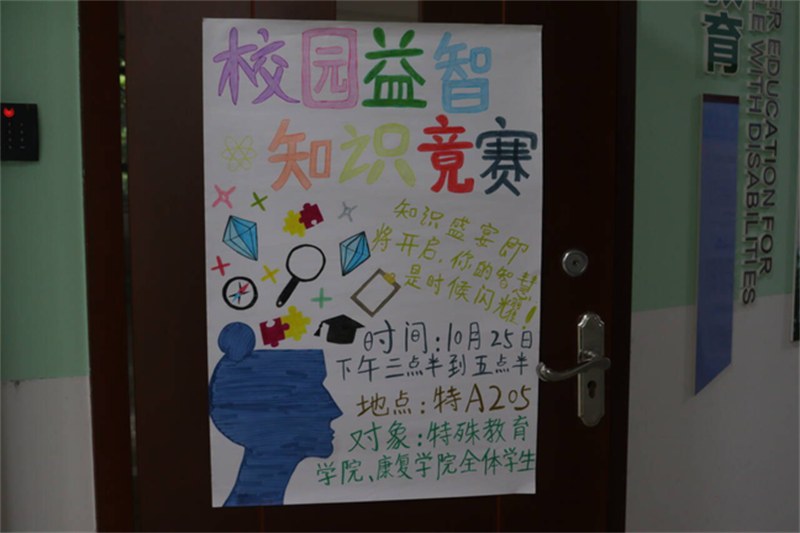 校园益智
知识竞赛
知识盛宴即
将开启,你的智慧
是时候闪耀!
时间:10月25日
下午三点半到五点半
地点:特A205
对象:特殊教育
学院、康复学院全体学生
育
EDUCATION FOR
WITH DISABILITIES